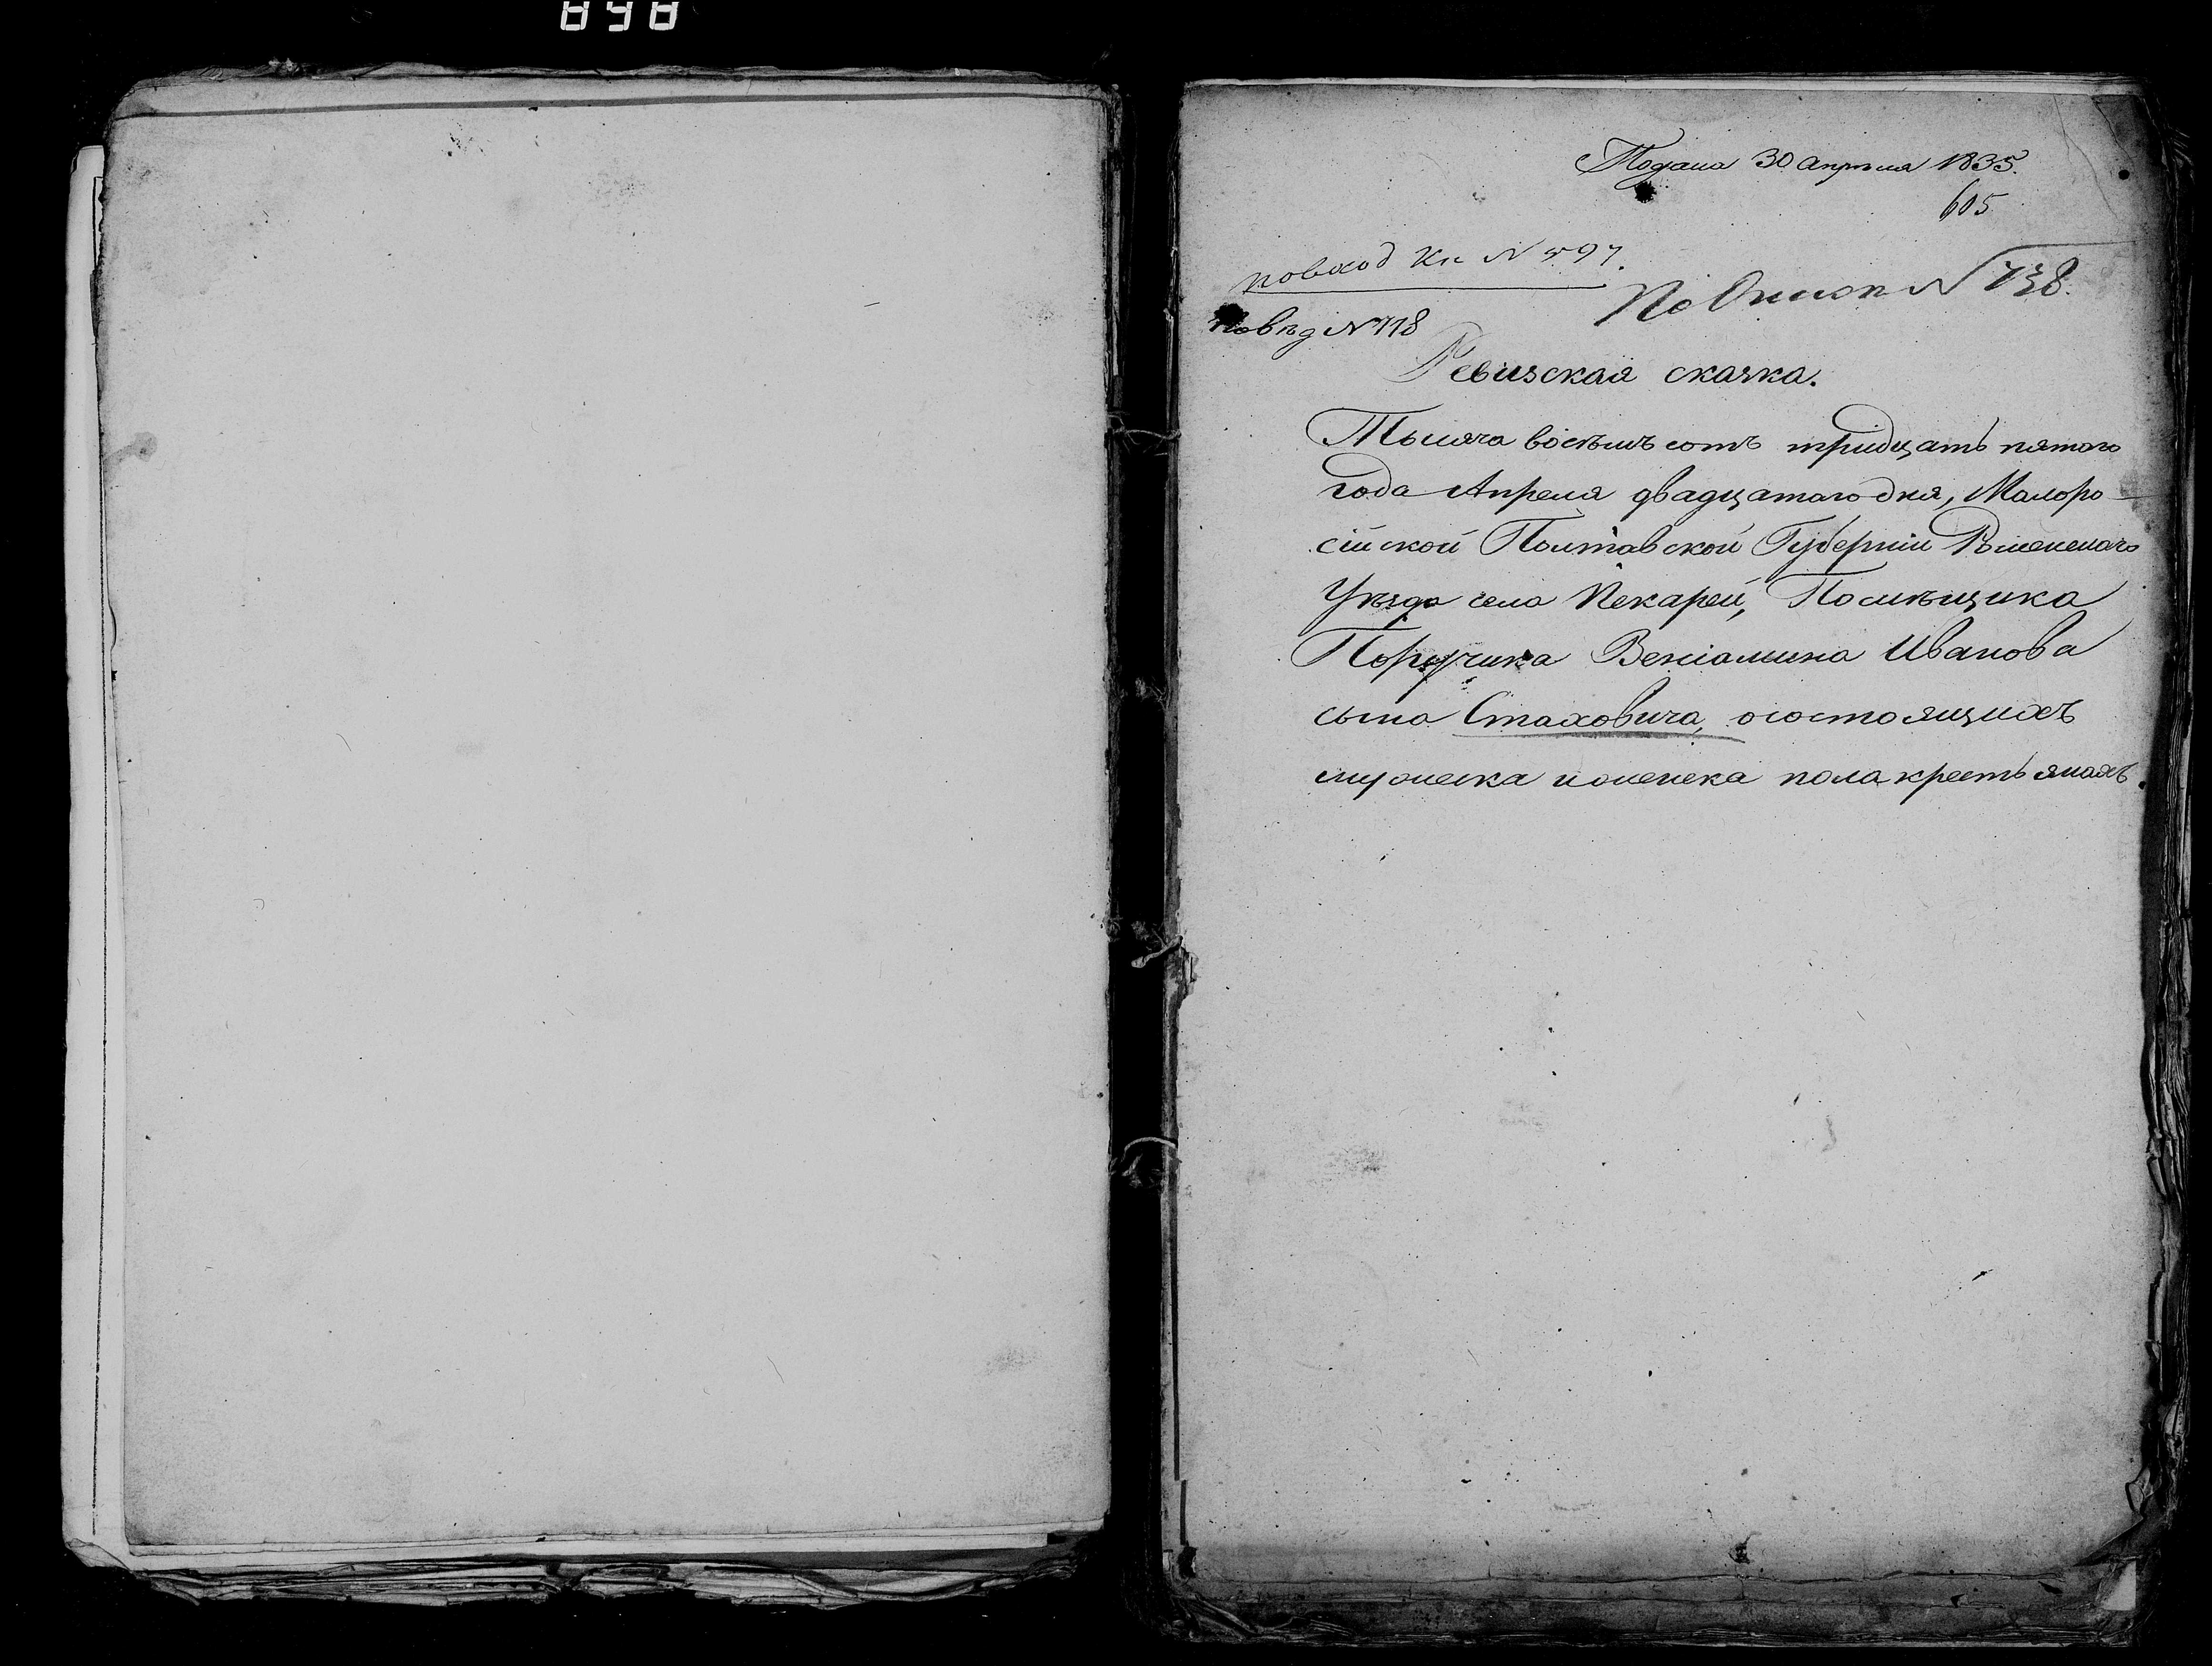 898
Подана 30 апрѣля 1835.
605
повход Кн N 597.
По Описи N 738.
по вѣд N 718
Ревизская сказка.
Тысяча восѣмъ сотъ тридцать пятого
года Апреля двадцатаго дня, Малоро-
сійской Полтавской Губерніи Роменскаго
Уѣзда села Пекарей, Помѣщика
Поручика Веніамина Иванова
сына Стаховича, осостоящихъ
мужеска иженска пола крестьянахъ.